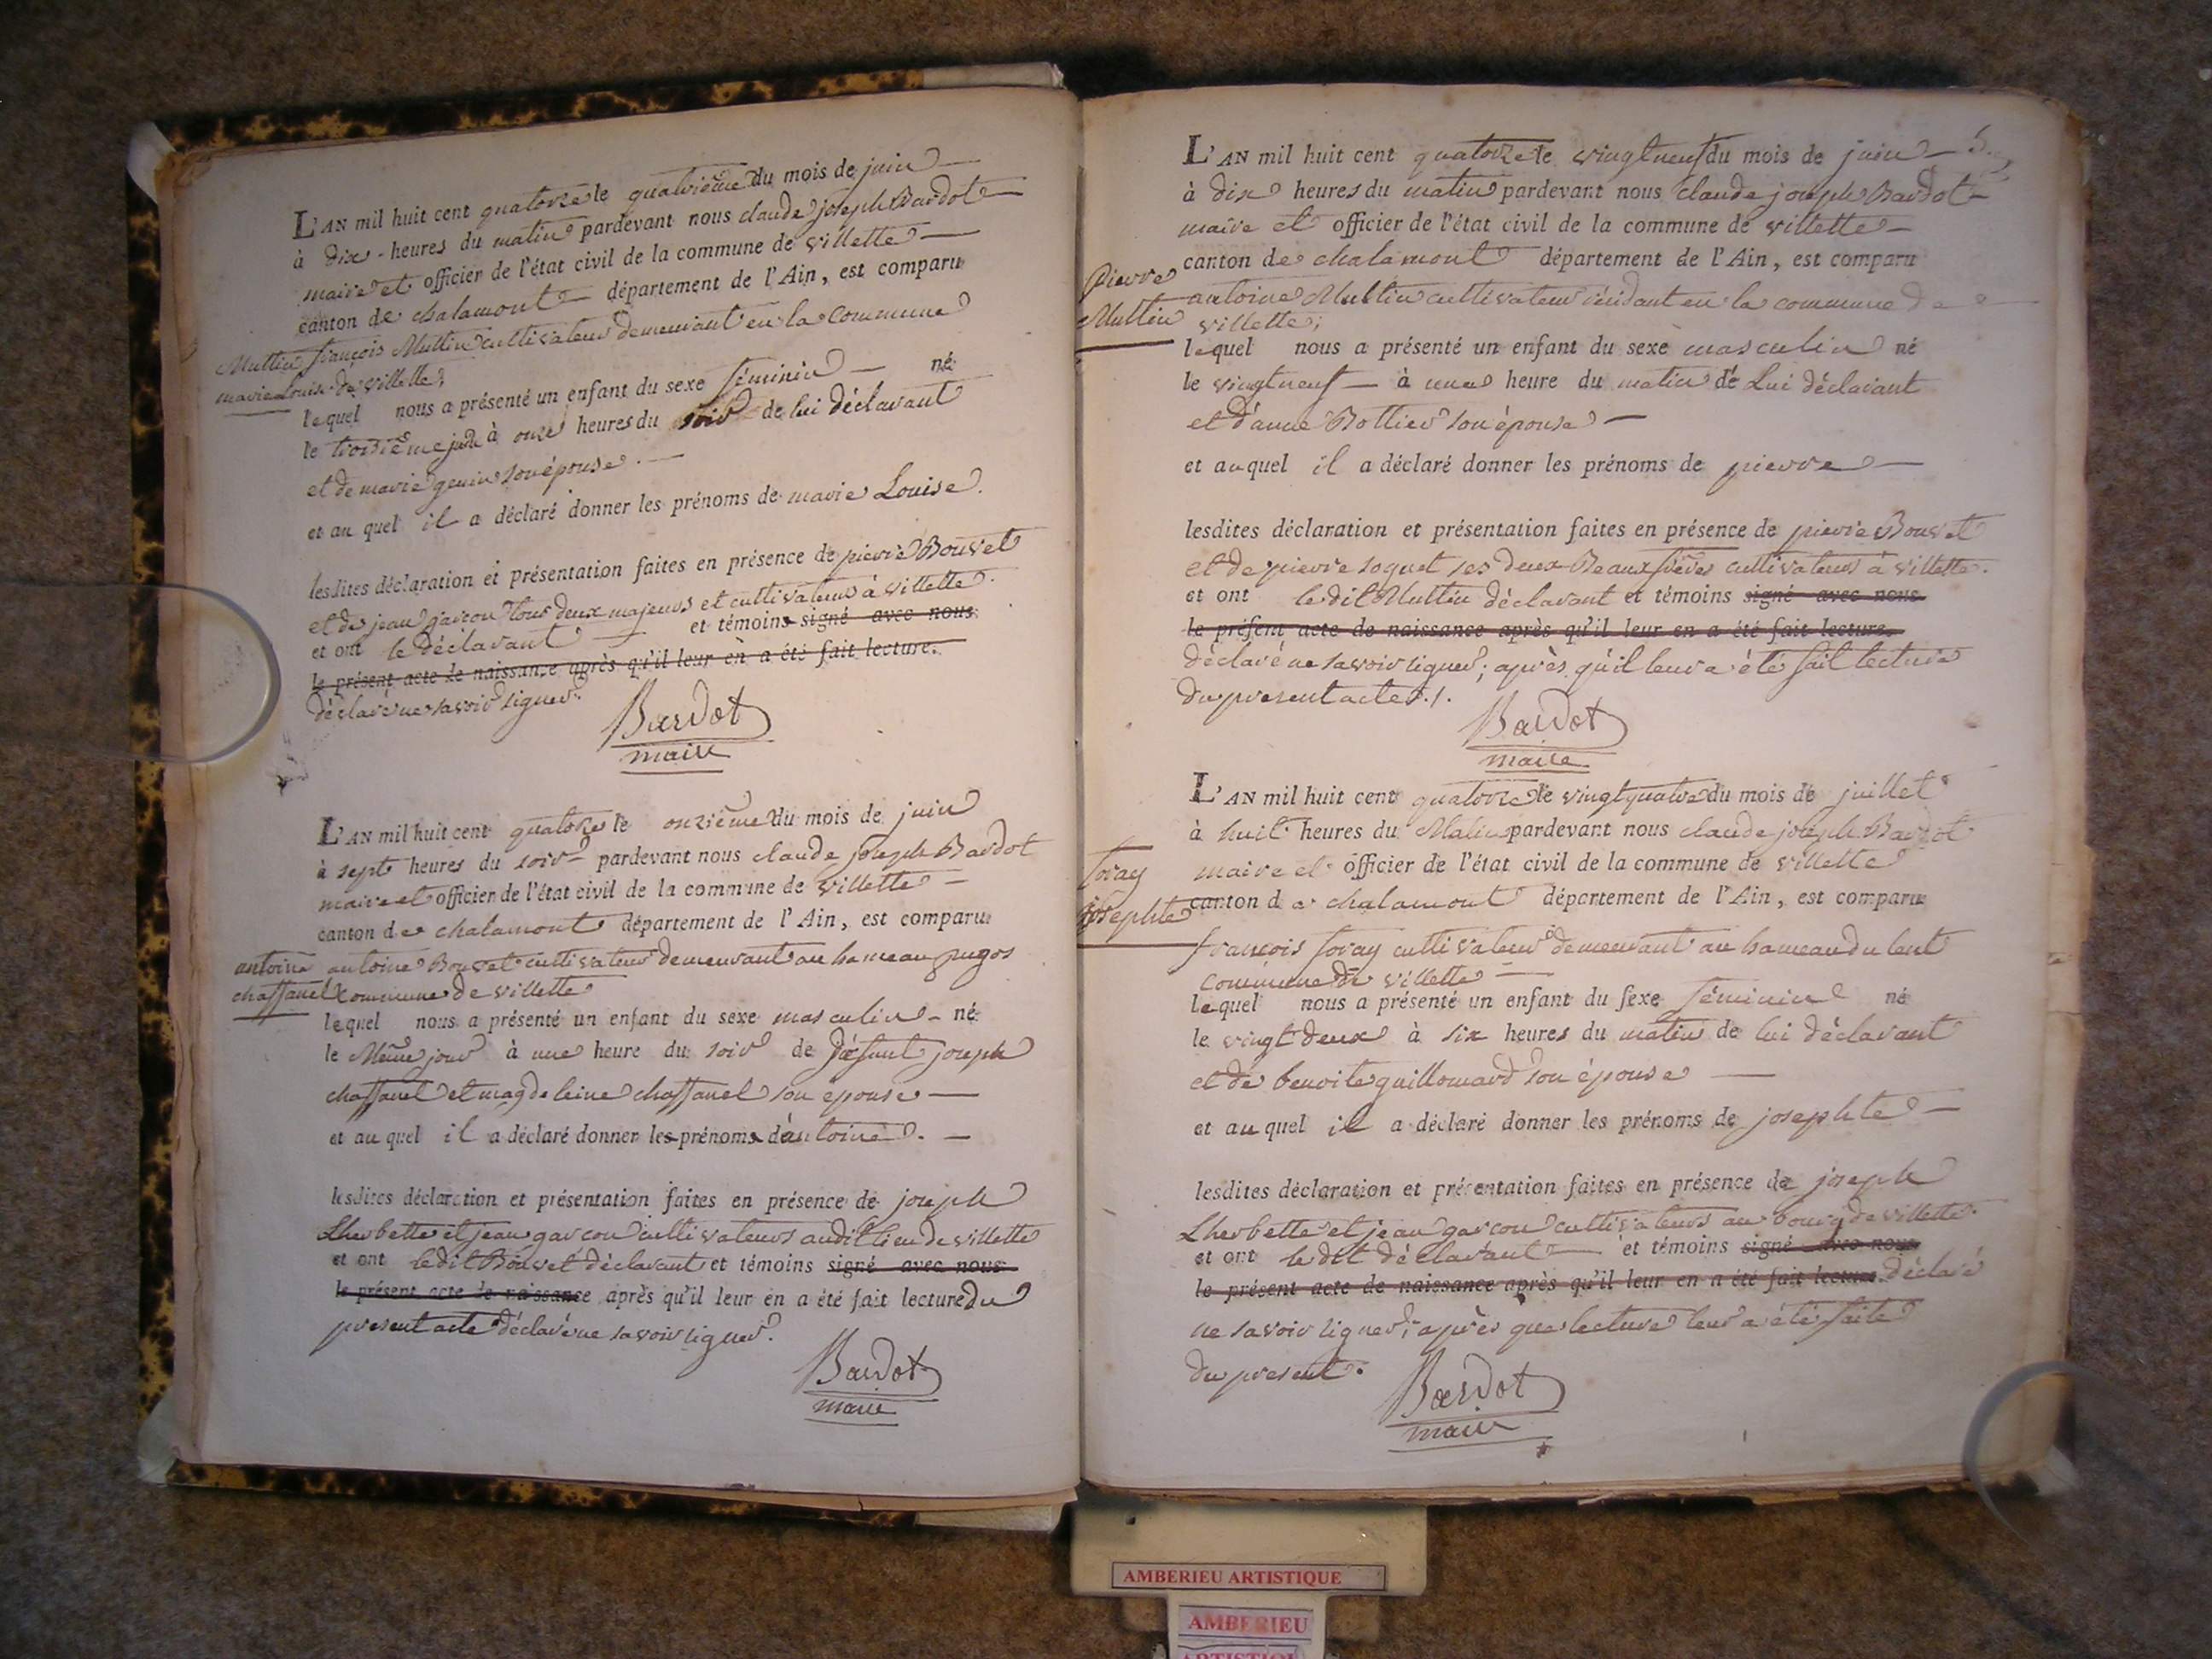 L'AN mil huit cent quatorze le quatrième du mois de juin
à dix heures du matin pardevant nous claude joseph Bardot
maire et officier de l'état civil de la commune de villette
canton de chalamont département de l'Ain, est comparu
Muttin françois Muttin cultivateur demeurant en la commune
marie Louise de villette;
lequel nous a présenté un enfant du sexe féminin né
le troisième juin à onze heures du soir de lui déclarant
et de marie genin son épouse.
et au quel il a déclaré donner les prénoms de marie Louise.
lesdites déclaration et présentation faites en présence de pierre Bouvet
et de jean garcon tous deux majeurs et cultivateurs à villette.
et ont le déclarant et témoins signé avec nous
le présent acte de naissance après qu'il leur en a été fait lecture.
déclaré ne savoir signer.
Bardot
maire
L'AN mil huit cent quatorze le onzième du mois de juin
à sept heures du soir pardevant nous claude joseph Bardot
maire et officier de l'état civil de la commune de villette
canton de chalamont département de l'Ain, est comparu
antoine antoine Bouvet cultivateur demeurant au hameau pugos
chassanel commune de villette
lequel nous a présenté un enfant du sexe masculin né
le Même jour à une heure du soir de joseph
chassanel et magdeleine chassanel son épouse
et au quel il a déclaré donner les prénoms d'antoine.
lesdites déclaration et présentation faites en présence de joseph
Lherbette et jean garcon cultivateurs audit lieu de villette
et ont ledit Bouvet déclarant et témoins signé avec nous
le présent acte de naissance après qu'il leur en a été fait lecture du
present acte déclaré ne savoir signer.
Bardot
maire
L'AN mil huit cent quatorze le vingt neuf du mois de juin 5.
à dix heures du matin pardevant nous claude joseph Bardot
maire et officier de l'état civil de la commune de villette
canton de chalamont département de l'Ain, est comparu
Pierre antoine Muttin cultivateur résidant en la commune de
Muttin villette;
lequel nous a présenté un enfant du sexe masculin né
le vingt neuf à une heure du matin de Lui déclarant
et d'anne Bottier son épouse
et auquel il a déclaré donner les prénoms de pierre
lesdites déclaration et présentation faites en présence de pierre Bouvet
et de pierre soquet ses deux Beaux frères cultivateurs à villette.
et ont ledit Muttin déclarant et témoins signé avec nous
le présent acte de naissance après qu'il leur en a été fait lecture.
déclaré ne savoir signer; après qu'il leur a été fait lecture
du present acte./.
Bardot
maire
L'AN mil huit cent quatorze le vingt quatre du mois de juillet
à huit heures du Matin pardevant nous claude joseph Bardot
maire et officier de l'état civil de la commune de villette
foray
canton de chalamont département de l'Ain, est comparu
josephte
françois foray cultivateur demeurant au hameau du lent
commune de villette
lequel nous a présenté un enfant du sexe féminin né
le vingt deux à six heures du matin de lui déclarant
et de benoite guillomard son épouse
et au quel il a déclaré donner les prénoms de josephte
lesdites déclaration et présentation faites en présence de joseph
Lherbette et jean garcon cultivateurs au bourg de villette.
et ont ledit déclarant et témoins signé avec nous
le présent acte de naissance après qu'il leur en a été fait lecture. déclaré
ne savoir signer; après que lecture leur a été faite
du present.
Bardot
maire
AMBERIEU ARTISTIQUE
AMBERIEU
ARTISTIQUE